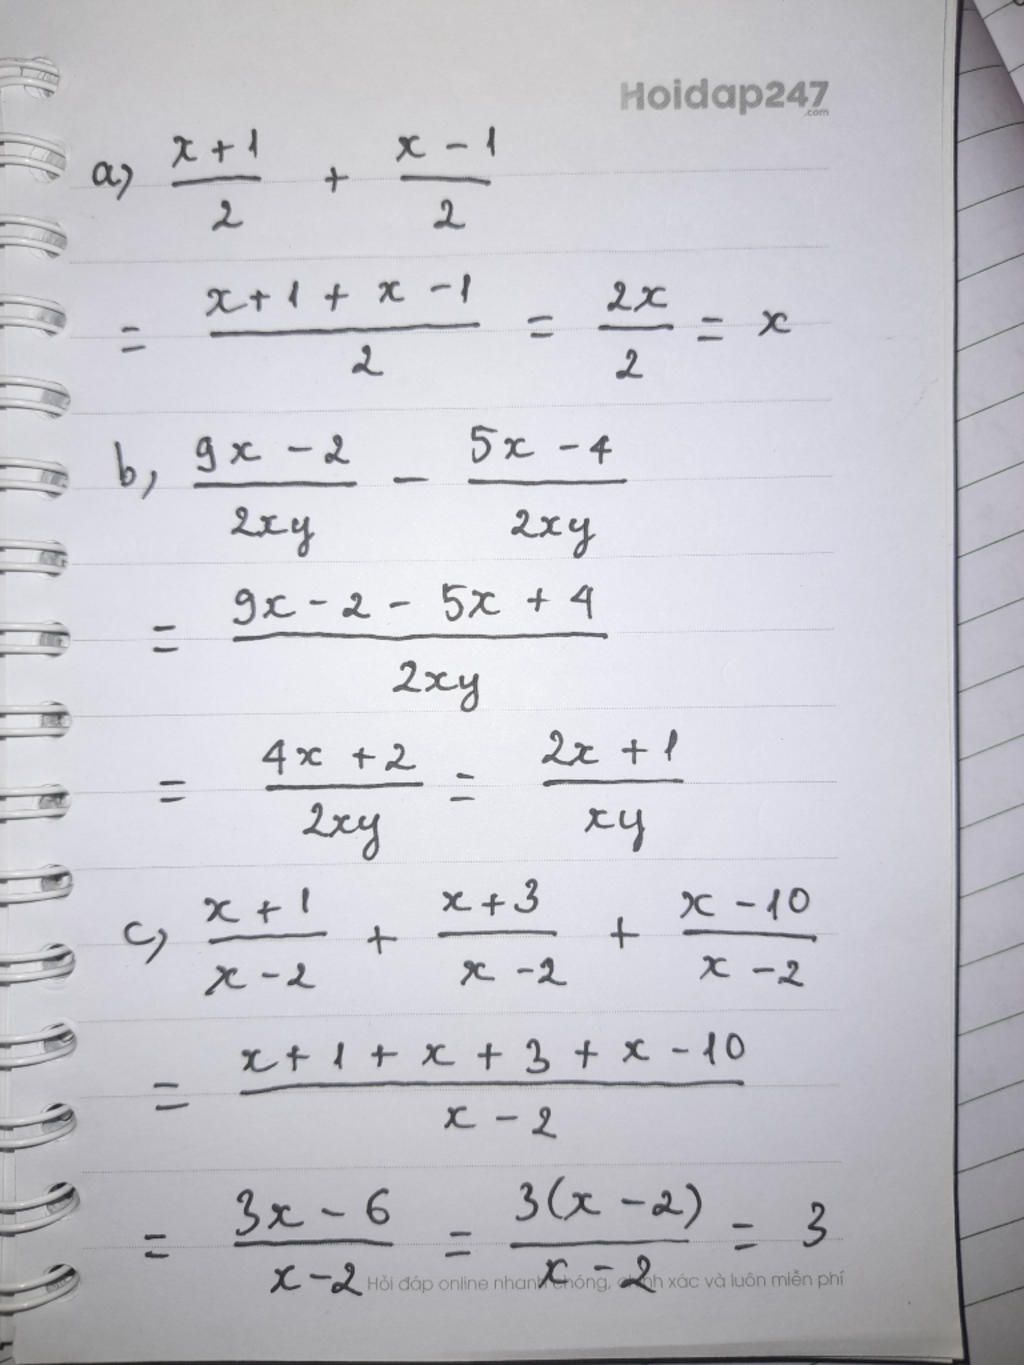 Hoidap247
.com
a) (x + 1)/2 + (x - 1)/2
= (x + 1 + x - 1)/2 = 2x/2 = x
b, (9x - 2)/2xy - (5x - 4)/2xy
= (9x - 2 - 5x + 4)/2xy
= (4x + 2)/2xy = (2x + 1)/xy
c) (x + 1)/(x - 2) + (x + 3)/(x - 2) + (x - 10)/(x - 2)
= (x + 1 + x + 3 + x - 10)/(x - 2)
= (3x - 6)/(x - 2) = 3(x - 2)/(x - 2) = 3
Hỏi đáp online nhanh chóng, chính xác và luôn miễn phí